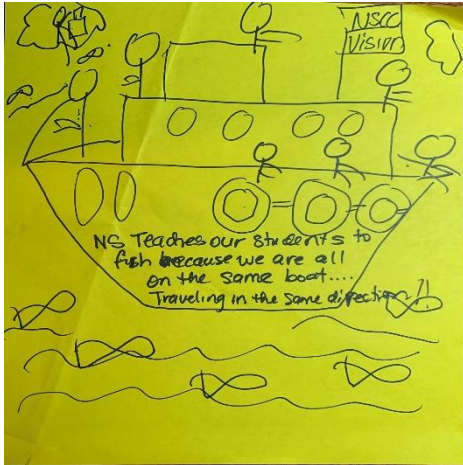 NSCC
Vision
NS Teaches our students to
fish because we are all
on the same boat....
Traveling in the same direction?!